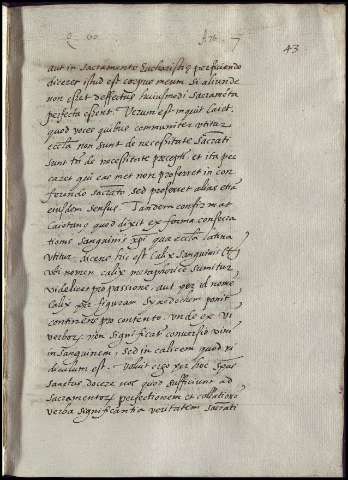 Q. 60 Ar. 7
43
aut in sacramento Eucharistię perficiendo
diceret istud est corpus meum. si aliunde
non esset deffectus huiusmodi sacramēta
perfecta essent. Verum est inquit Caiet.
quod voces quibus communiter vtitur
ecclā non sunt de necessitate sacrāti
sunt tn̄ de necessitate pręcepti et ita pec
caret qui eas met non proferret in con
ferendo sacrāto sed proferret alias etiā
eiusdem sensus. Tandem confirmat
Caietano quod dixit ex forma consecra
tionis sanguinis xp̄i qua ecclā latina
vtitur dicens hic est calix sanguinis
vbi nomen calix metaphorice sumitur
videlicet pro passione, aut per id nome
Calix per figuram synedochem ponit
continens pro contento, vnde ex vi
verbor, non significat conversio vini
in sanguinem, sed in calicem quod ri
diculum est. Voluit ergo per hoc spūs
sanctus docere nos quod sufficiunt ad
sacramentorum perfectionem et collationē
verba significantia veritatem sacrāti